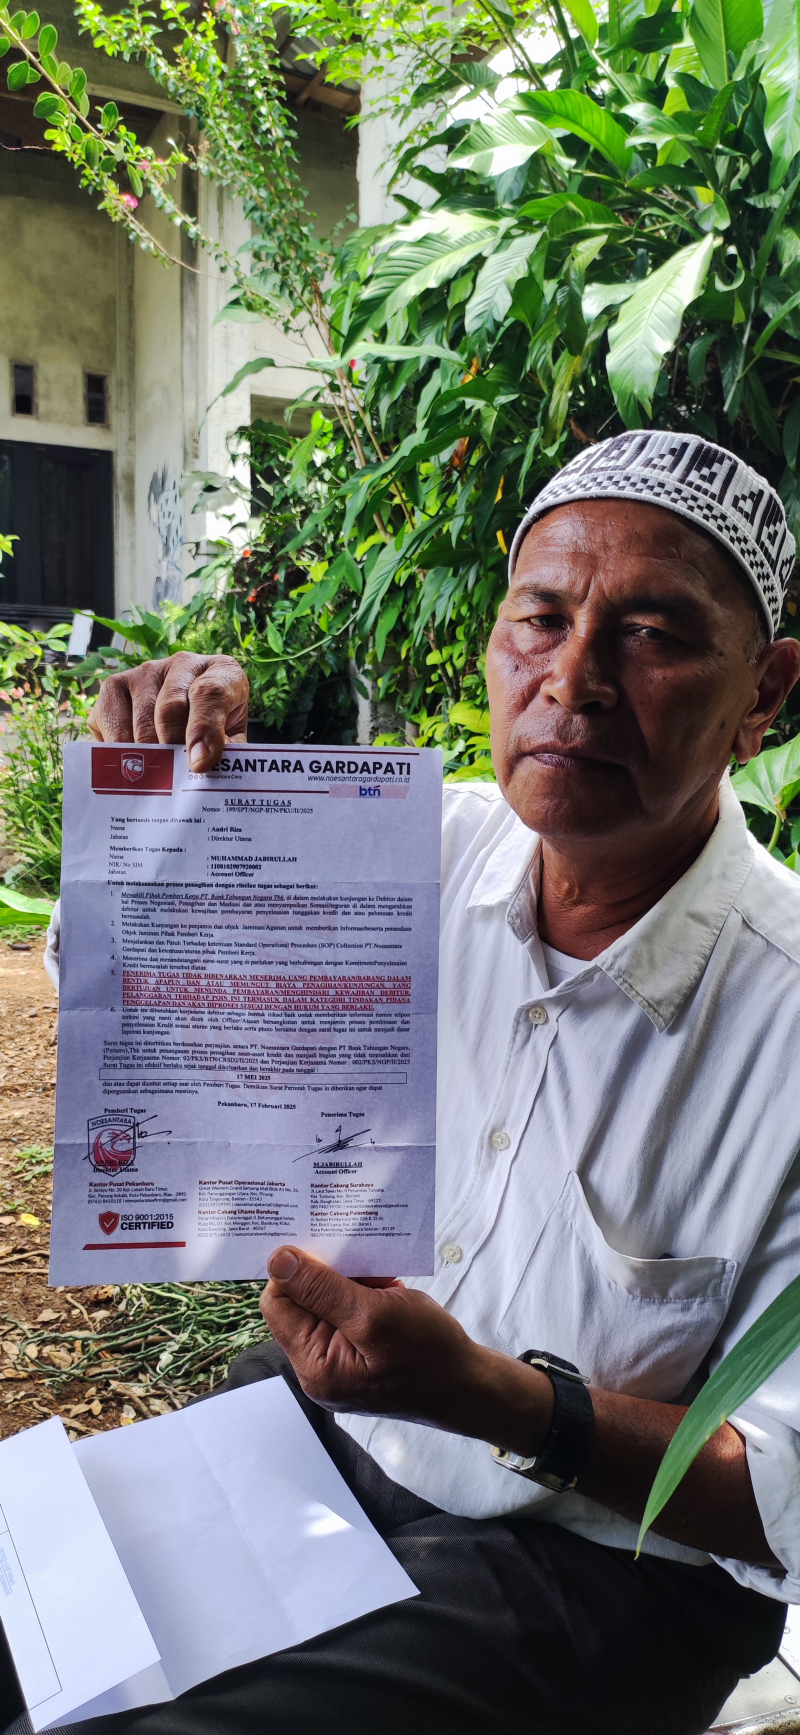 NOESANTARA GARDAPATI
Noesantara Gata
www.noesantaragardapati.co.id
btn
SURAT TUGAS
Nomor : 199/SPT/NGP-BTN/PKU/II/2025
Yang bertanda tangan dibawah ini :
Nama : Andri Riza
Jabatan : Direktur Utama
Memberikan Tugas Kepada :
Nama : MUHAMMAD JABIRULLAH
NIK/ No SIM : 1108102907920002
Jabatan : Account Officer
Untuk melaksanakan proses penagihan dengan rincian tugas sebagai berikut:
1. Mewakili Pihak Pemberi Kerja PT. Bank Tabungan Negara Tbk, di dalam melakukan kunjungan ke Debitur dalam
hal Proses Negosiasi, Penagihan dan Mediasi dan atau menyampaikan Somasi/teguran di dalam mengarahkan
debitur untuk melakukan kewajiban pembayaran penyelesaian tunggakan kredit dan atau pelunasan kredit
bermasalah.
2. Melakukan Kunjungan ke penjamin dan objek Jaminan/Agunan untuk memberikan Informasi beserta penandaan
Objek Jaminan Pihak Pemberi Kerja.
3. Menjalankan dan Patuh Terhadap ketentuan Standard Operasional Procedure (SOP) Collection PT.Noesantara
Gardapati dan ketentuan/aturan pihak Pemberi Kerja.
4. Menerima dan menandatangani surat-surat yang di perlukan yang berhubungan dengan Komitmen Penyelesaian
Kredit bermasalah tersebut diatas.
5. PENERIMA TUGAS TIDAK DIBENARKAN MENERIMA UANG PEMBAYARAN/BARANG DALAM
BENTUK APAPUN DAN ATAU MEMUNGUT BIAYA PENAGIHAN/KUNJUNGAN, YANG
BERTUJUAN UNTUK MENUNDA PEMBAYARAN/MENGHINDARI KEWAJIBAN DEBITUR,
PELANGGARAN TERHADAP POIN INI TERMASUK DALAM KATEGORI TINDAKAN PIDANA
PENGGELAPAN DAN AKAN DIPROSES SESUAI DENGAN HUKUM YANG BERLAKU.
6. Untuk ini dibutuhkan kerjasama debitur sebagai bentuk itikad baik untuk memberikan informasi nomor telpon
terkini yang nanti akan dicek oleh Officer/Atasan bersangkutan untuk menjamin proses pembinaan dan
penyelesaian Kredit sesuai aturan yang berlaku serta photo bersama dengan surat tugas ini untuk menjadi dasar
laporan kunjungan.
Surat tugas ini diterbitkan berdasarkan perjanjian, antara PT. Noesantara Gardapati dengan PT Bank Tabungan Negara,
(Persero),Tbk untuk penanganan proses penagihan asset-asset kredit dan menjadi bagian yang tidak terpisahkan dari
Perjanjian Kerjasama Nomor: 03/PKS/BTN/CRSD2/II/2025 dan Perjanjian Kerjasama Nomor : 002/PKS/NGP/II/2025
Surat Tugas ini efektif berlaku sejak tanggal dikeluarkan dan berakhir pada tanggal :
17 MEI 2025
dan atau dapat dicabut setiap saat oleh Pemberi Tugas. Demikian Surat Perintah Tugas ini diberikan agar dapat
dipergunakan sebagaimana mestinya.
Pekanbaru, 17 Februari 2025
Pemberi Tugas
Penerima Tugas
NOESANTARA
ANDRI RIZA
Direktur Utama
M.JABIRULLAH
Account Officer
Kantor Pusat Pekanbaru
Kantor Pusat Operasional Jakarta
Kantor Cabang Surabaya
Kantor Cabang Utama Bandung
Kantor Cabang Palembang
ISO 9001:2015
CERTIFIED